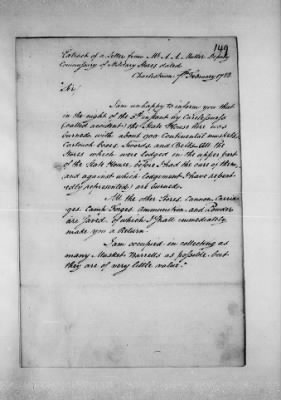 149
Extract of a Letter from Mr. A. A. Muller Deputy
Commissary of Military Stores dated
Charlestown 7th February 1788
Sir
I am unhappy to inform you that
in the night of the 5th instant by Carelessness
(called accident) the State House here was
burned with about 1700 Continental muskets
Cartouch boxes, Swords and Belts. All the
Stores which were lodged in the upper part
of the State House, before I had the care of them,
and against which lodgement I have
represented, are burned.
All the other Stores. Cannon, Carria-
ges, Camp Forges, Ammunition, and Powder
are saved, of which I shall immediately
make you a Return.
I am occupied in collecting as
many Musket Barrells as possible, but
they are of very little value.